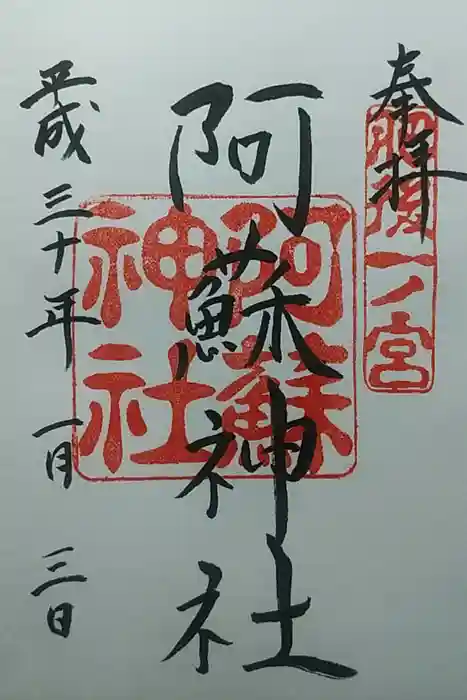 奉拝
肥後一ノ宮
阿蘇神社
阿蘇
神社
平成三十年一月三日